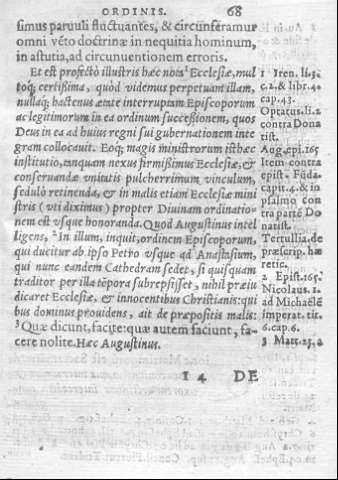 ORDINIS. 68
simus paruuli fluctuantes, & circunferamur
omni vẽto doctrinæ in nequitia hominum,
in astutia, ad circunuentionem erroris.
Et est profectò illustris hæc nota Ecclesiæ, mul
toq́; certissima, quòd videmus perpetuam illam,
nullaq́; hactenus ætate interruptam Episcoporum
ac legitimorum in ea ordinum successionem, quos
Deus in ea ad huius regni sui gubernationem inte
gram collocauit. Eoq́; magis ministrorum isthæc
institutio, tanquam nexus firmissimus Ecclesiæ, &
conseruandæ vnitatis pulcherrimum vinculum,
sedulò retinenda, & in malis etiam Ecclesiæ mini
stris (vti diximus) propter Diuinam ordinatio-
nem est vsque honoranda. Quod Augustinus intel
ligens, 2 In illum, inquit, ordinem Episcoporum,
qui ducitur ab ipso Petro vsque ad Anastasium,
qui nunc eandem Cathedram sedet, si quisquam
traditor per illa tẽpora subrepsisset, nihil præiu
dicaret Ecclesiæ, & innocentibus Christianis: qui
bus dominus prouidens, ait de præpositis malis:
3 Quæ dicunt, facite: quæ autem faciunt, fa-
cere nolite. Hæc Augustinus.
I 4 DE
1 Iren. li.3.
c.2. & lib.4.
cap.43.
Optatus. li.2
contra Dona
tist.
Aug. epi.165
Item contra
epist. Fũda.
capit.4. & in
psalmo con
tra partẽ Do
natist.
Tertullia. de
præscrip. hæ
retic.
2 Epist.165.
Nicolaus.1.
ad Michaelẽ
imperat. tit.
6.cap.6.
3 Matt.23.a